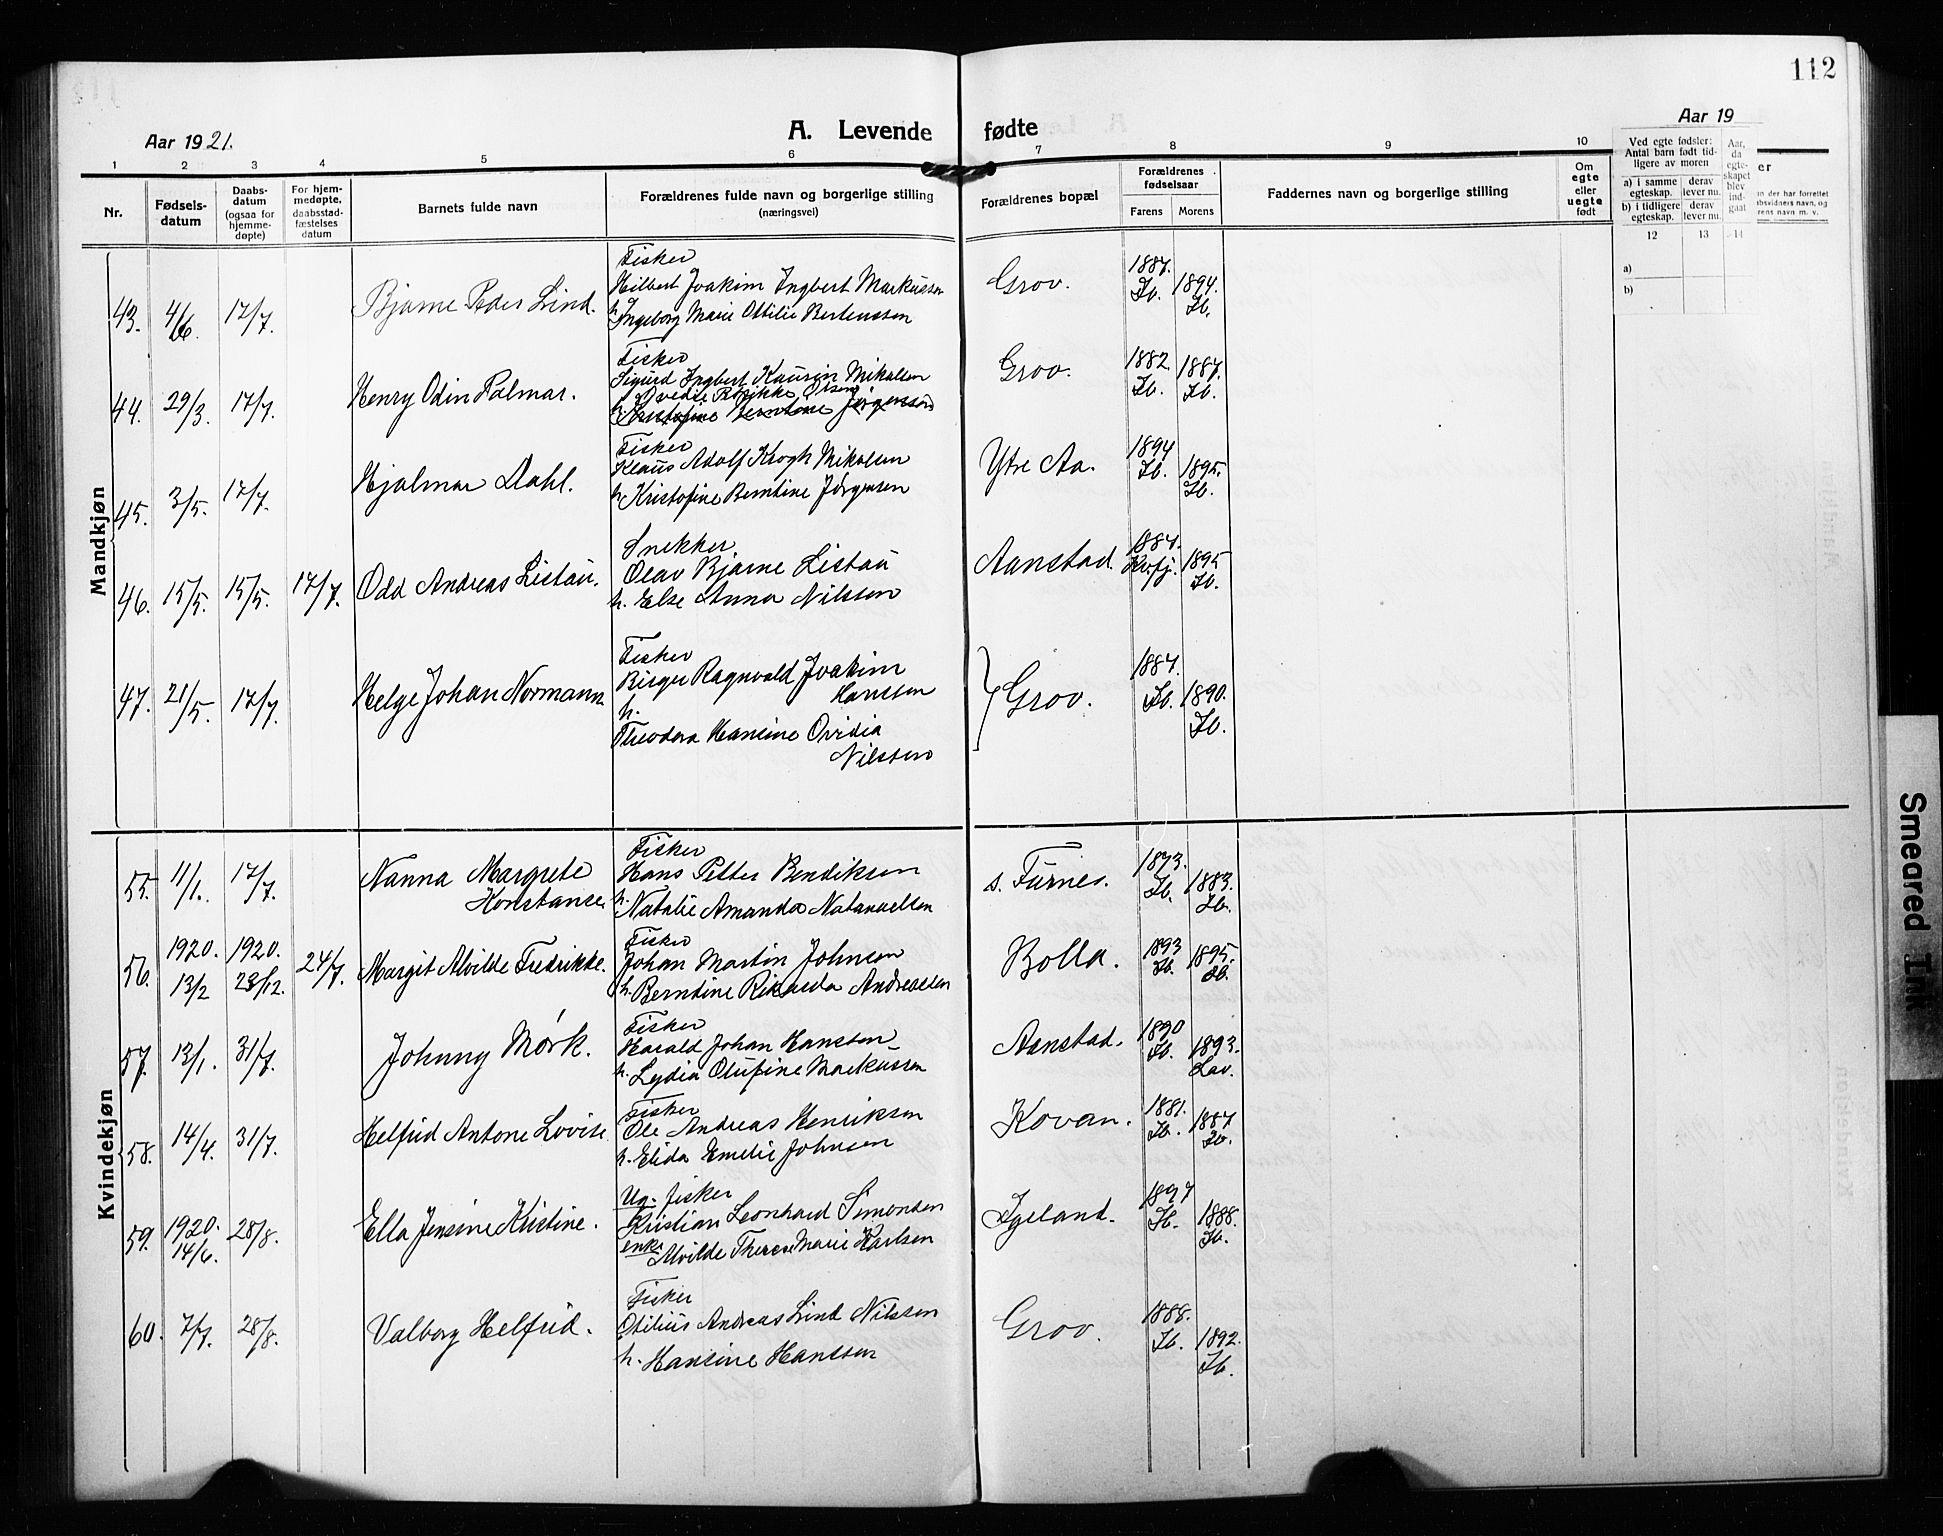 112
Aar 1921.
A. Levende fødte
Aar 19
1 2 3 4 5 6 7 8 9 10
Nr.
Fødsels-
datum
Daabs-
datum
(ogsaa for
hjemme-
døpte)
For hjem-
medøpte,
daabsstad-
fæstelses
datum
Barnets fulde navn
Forældrenes fulde navn og borgerlige stilling
(næringsvei)
Forældrenes bopæl
Forældrenes
fødselsaar
Farens Morens
Faddernes navn og borgerlige stilling
Om
egte
eller
uegte
født
Ved egte fødsler:
Antal barn født tid-
ligere av moren
a) i samme
egteskap.
derav
lever nu.
b) i tidligere
egteskap.
derav
lever nu.
Aar,
da
egte-
skapet
blev
ind-
gaat
12 13 14
a)
b)
er
n der har forrettet
absvidners navn, og
rens navn m. v.
Mandkjøn
43. 4/6. 17/7. Bjarne Peder Lind.
Fisker
Hilbert Joakim Ingbert Markussen
h. Ingeborg Marie Ottilie Berteussen
Grov. 1887. Ib. 1894. Ib.
44. 29/3. 17/7. Henry Odin Palmar.
Fisker
Sigurd Ingbert Kaurin Mikalsen
Ovedie Rikikke Olsen
h. Kristofine Berntine Jørgensen
Grov. 1882. Ib. 1887. Ib.
45. 3/5. 17/7. Hjalmar Dahl.
Fisker
Klaus Adolf Krogh Mikalsen
h. Kristofine Berntine Jørgensen
Ytre Aa. 1894 Ib. 1895. Ib.
46. 15/5. 15/5. 17/7. Odd Andreas Listau.
Snekker
Olav Bjarne Listau
h. Else Anna Nilssen
Aanstad. 1887. Kvfj. 1895 Ib.
47. 21/5. 17/7. Helge Johan Normann
Fisker
Birger Ragnvald Joakim
Hanssen
h.
Theodora Hansine Ovidia
Nilssen
Grov. 1887. Ib. 1890. Ib.
Kvindekjøn
55. 11/1. 17/7. Nanna Margrete
Konstanse
Fisker
Hans Petter Bendiksen
h. Natalie Amanda Natanaelsen
s. Furnes. 1873. Ib. 1883. Ib.
56. 1920. 13/2 1920. 23/12. 24/7. Margit Alvilde Fredrikke.
Fisker
Johan Martin Johnsen
h. Berntine Rikarda Andreassen
Bolla. 1893 Ib. 1895. Ib.
57. 13/1. 31/7. Johnny Mørk.
Fisker
Harald Johan Hanssen
h. Lydia Olufine Markussen
Aanstad. 1890 Ib. 1893. Lav.
58. 14/4. 31/7. Helfrid Antone Lovise.
Fisker
Ole Andreas Henriksen
h. Elida Emelie Johnsen
Kovan. 1881. Ib. 1887 Ib.
59. 1920. 14/6. 28/8. Ella Jensine Kristine.
Ug. fisker
Kristian Leonhard Simonsen
enke Alvilde Therese Marie Karlsen
Igeland. 1897 Ib. 1888. Ib.
60. 7/7. 28/8. Valborg Helfrid.
Fisker
Otilius Andreas Lind Nilssen
h. Hansine Hanssen
Grov. 1888. Ib. 1892. Ib.
Smeared Ink